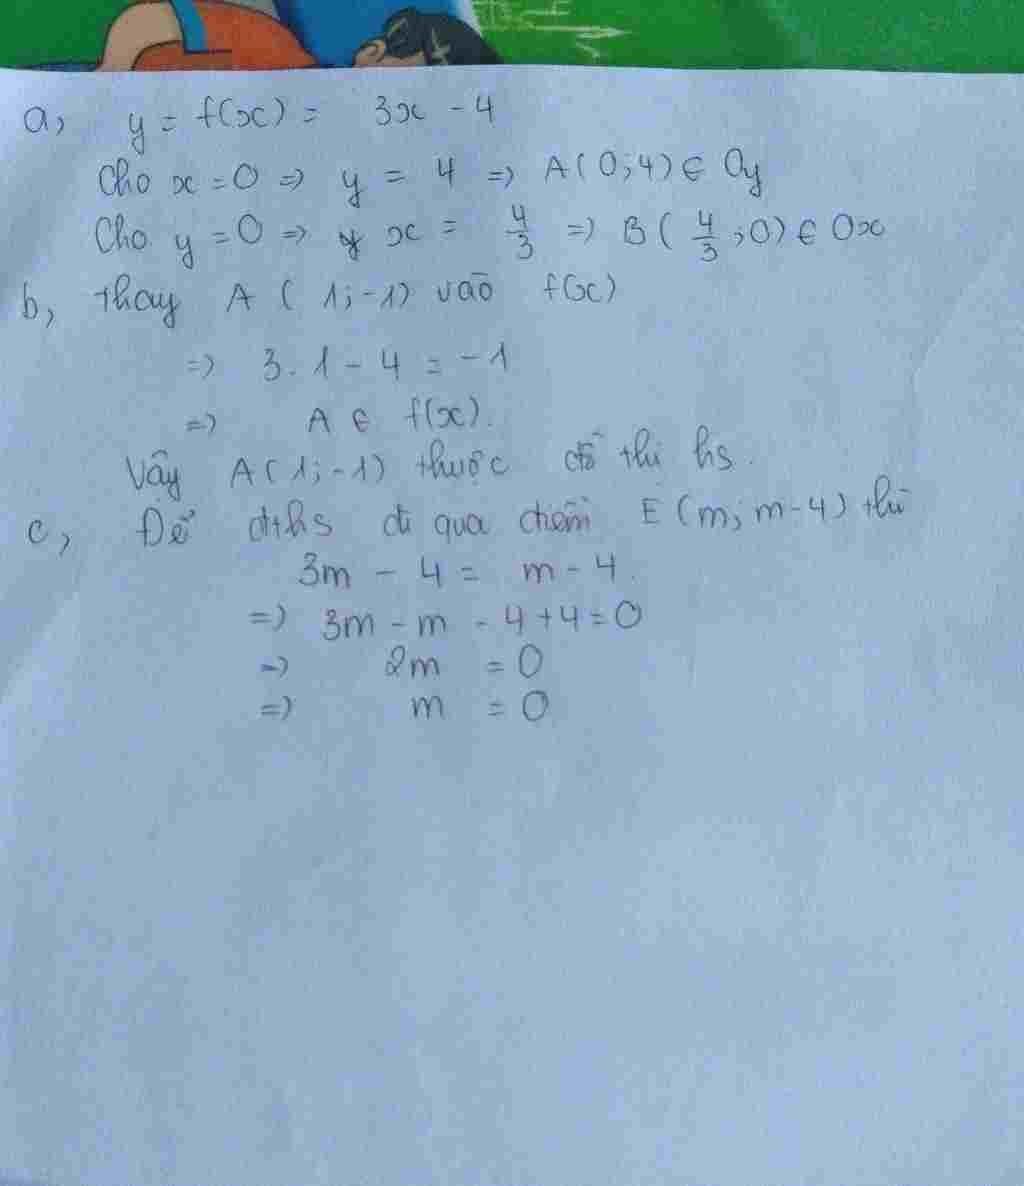 a, y = f(x) = 3x - 4
Cho x = 0 => y = 4 => A(0;4) ∈ Oy
Cho y = 0 => x = 4/3 => B(4/3;0) ∈ Ox
b, thay A(1;-1) vào f(x)
=> 3.1 - 4 = -1
=> A ∈ f(x).
Vậy A(1;-1) thuộc đồ thị hs.
c, Để đths đi qua điểm E(m; m-4) thì
3m - 4 = m - 4.
=> 3m - m - 4 + 4 = 0
=> 2m = 0
=> m = 0